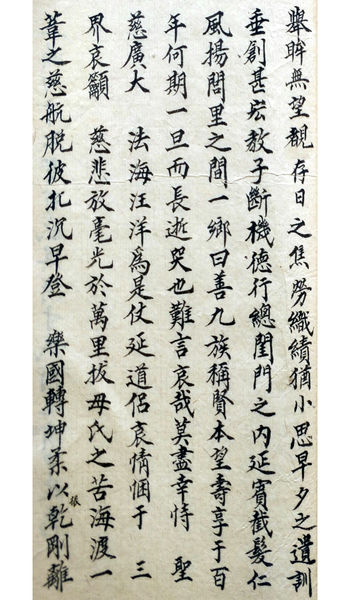 舉眸無望覩 存日之焦勞織績猶小思早夕之遺訓
垂創甚宏教子斷機德行總閨門之內延賓截髮仁
風揚問里之間一鄉曰善九族稱賢本望壽享于百
年何期一旦而長逝哭也難言哀哉莫盡幸恃 聖
慈廣大 法海汪洋爲是仗延道侶哀情悃于 三
界哀籲 慈悲放毫光於萬里拔母氏之苦海渡一
葦之慈航脫彼北沉早登 樂國轉坤柔以乾剛離